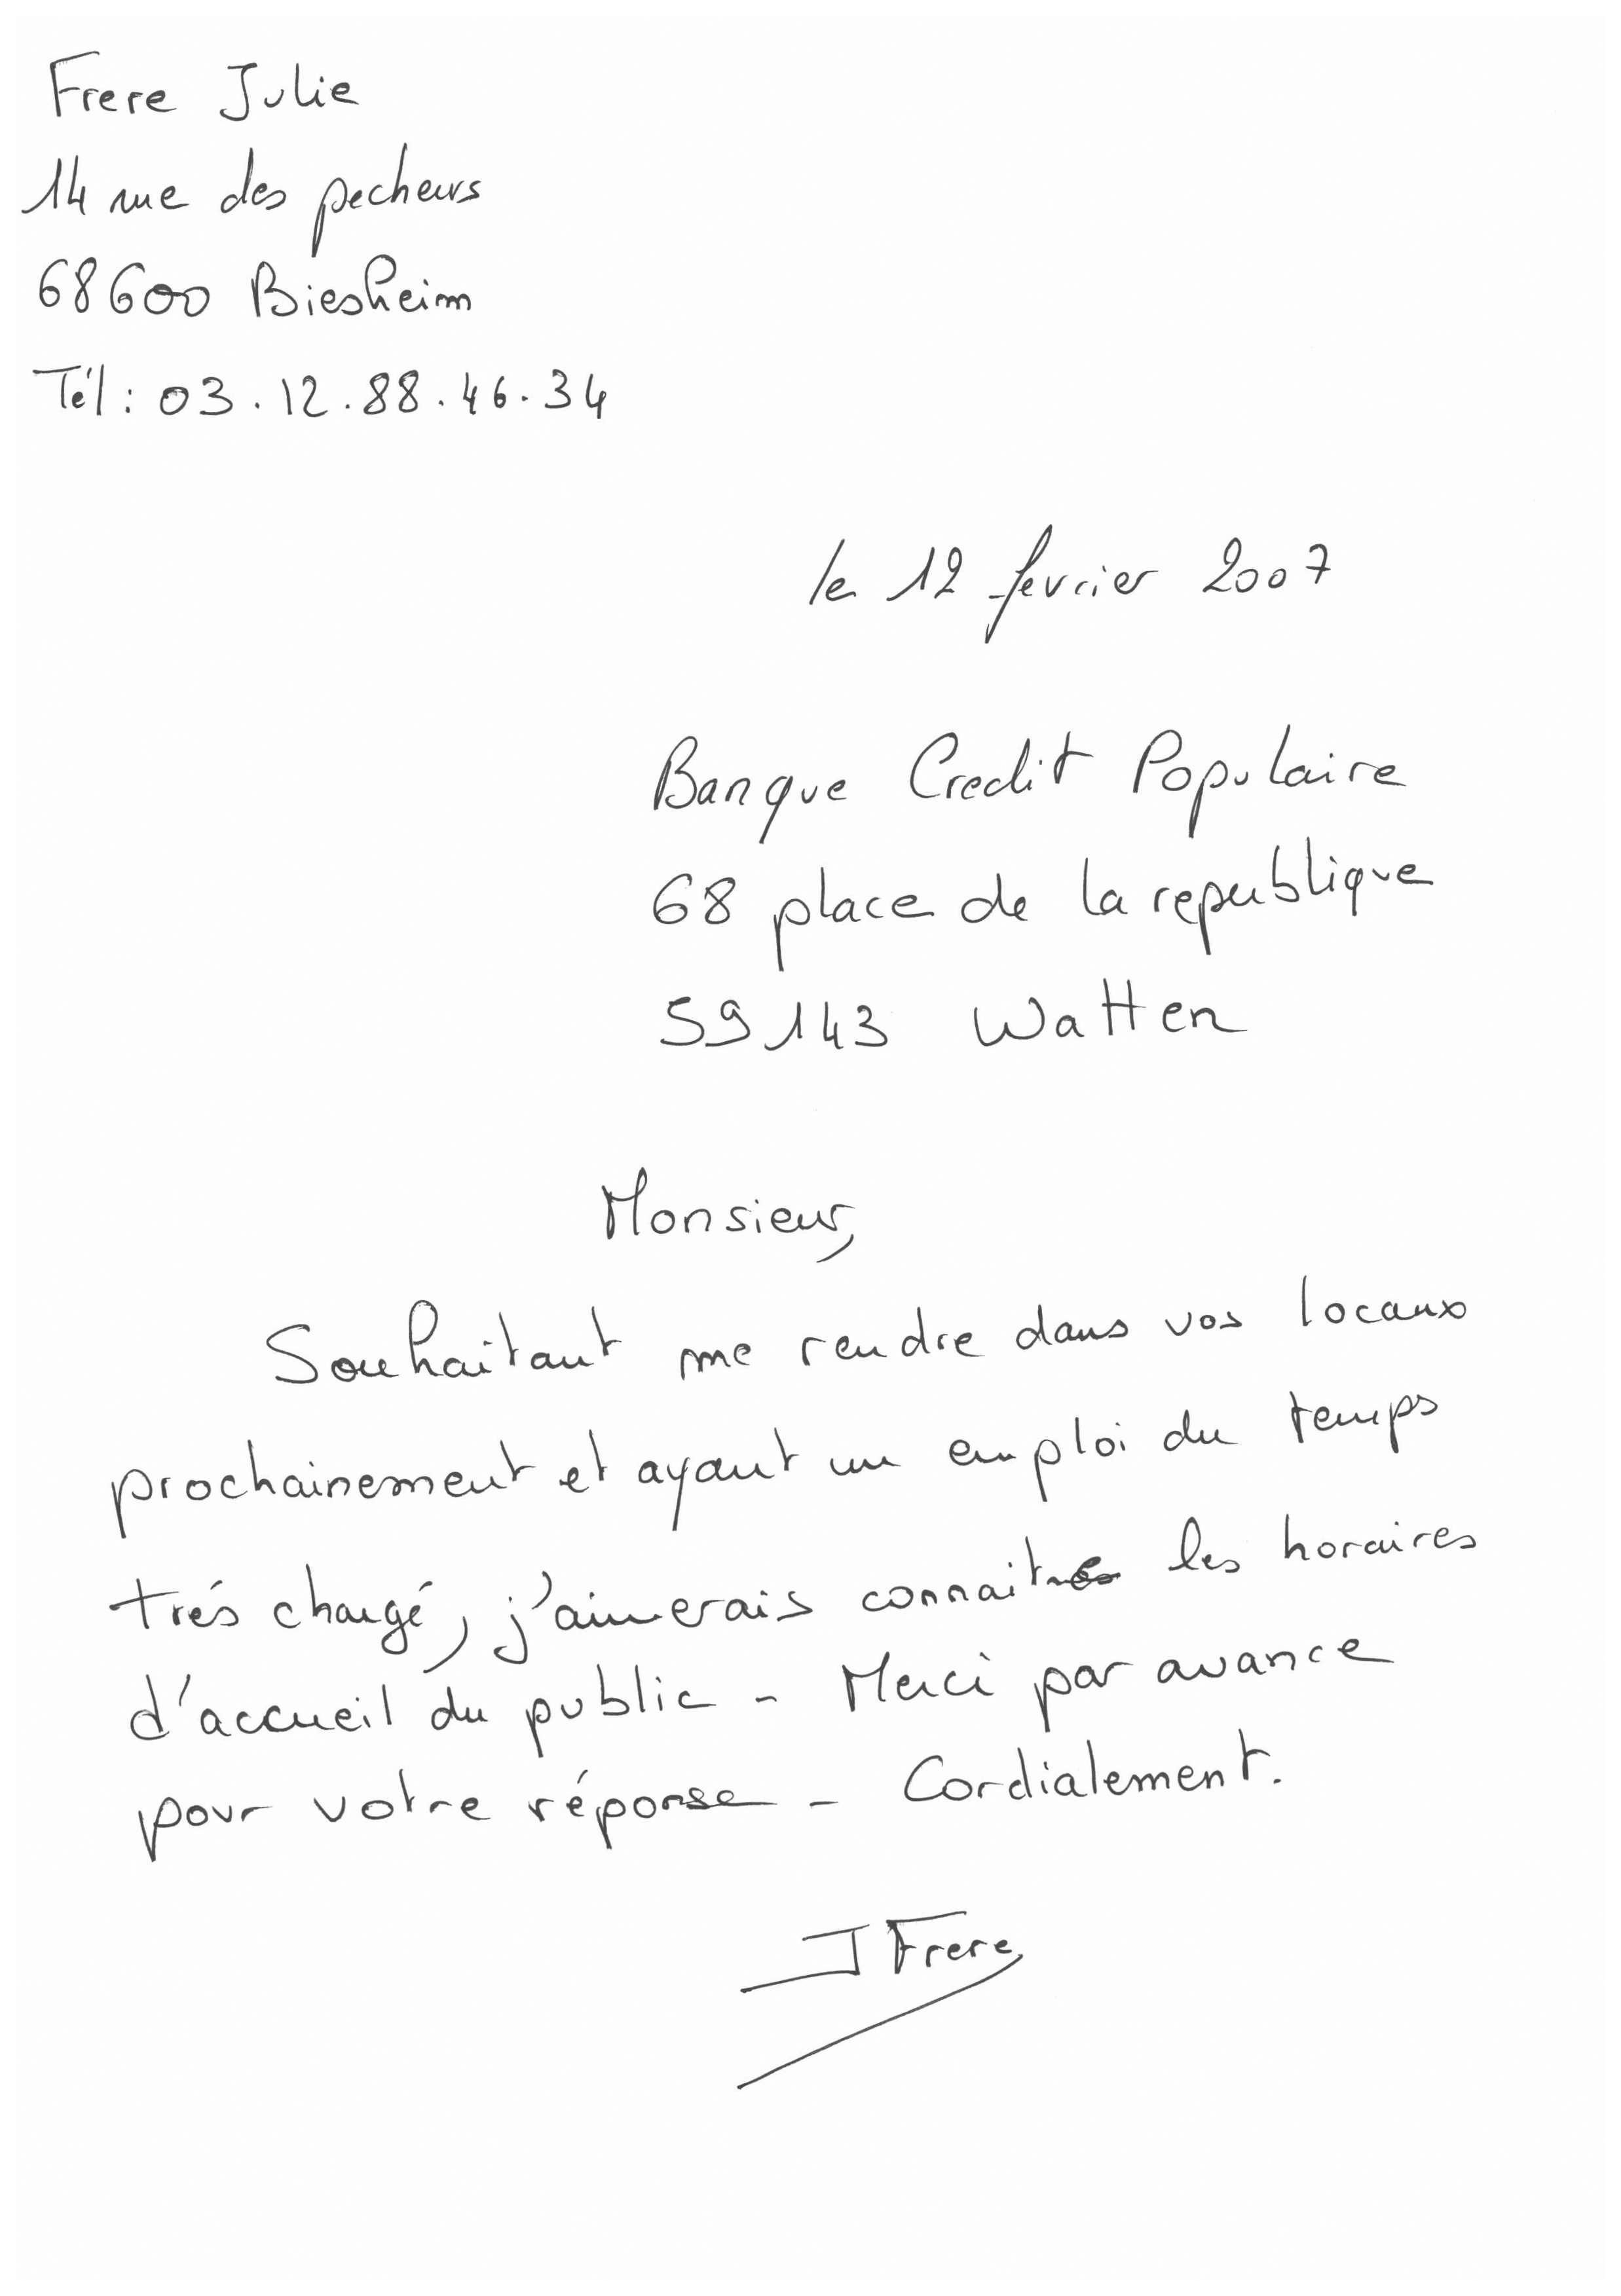 Frere Julie
14 rue des pecheurs
68600 Biesheim
Tél : 03.12.88.46.34
le 12 fevrier 2007
Banque Credit Populaire
68 place de la republique
59143 Watten
Monsieur,
Souhaitant me rendre dans vos locaux
prochainement et ayant un emploi du temps
trés chargé, j'aimerais connaitre les horaires
d'accueil du public - Merci par avance
pour votre réponse - Cordialement.
J Frere